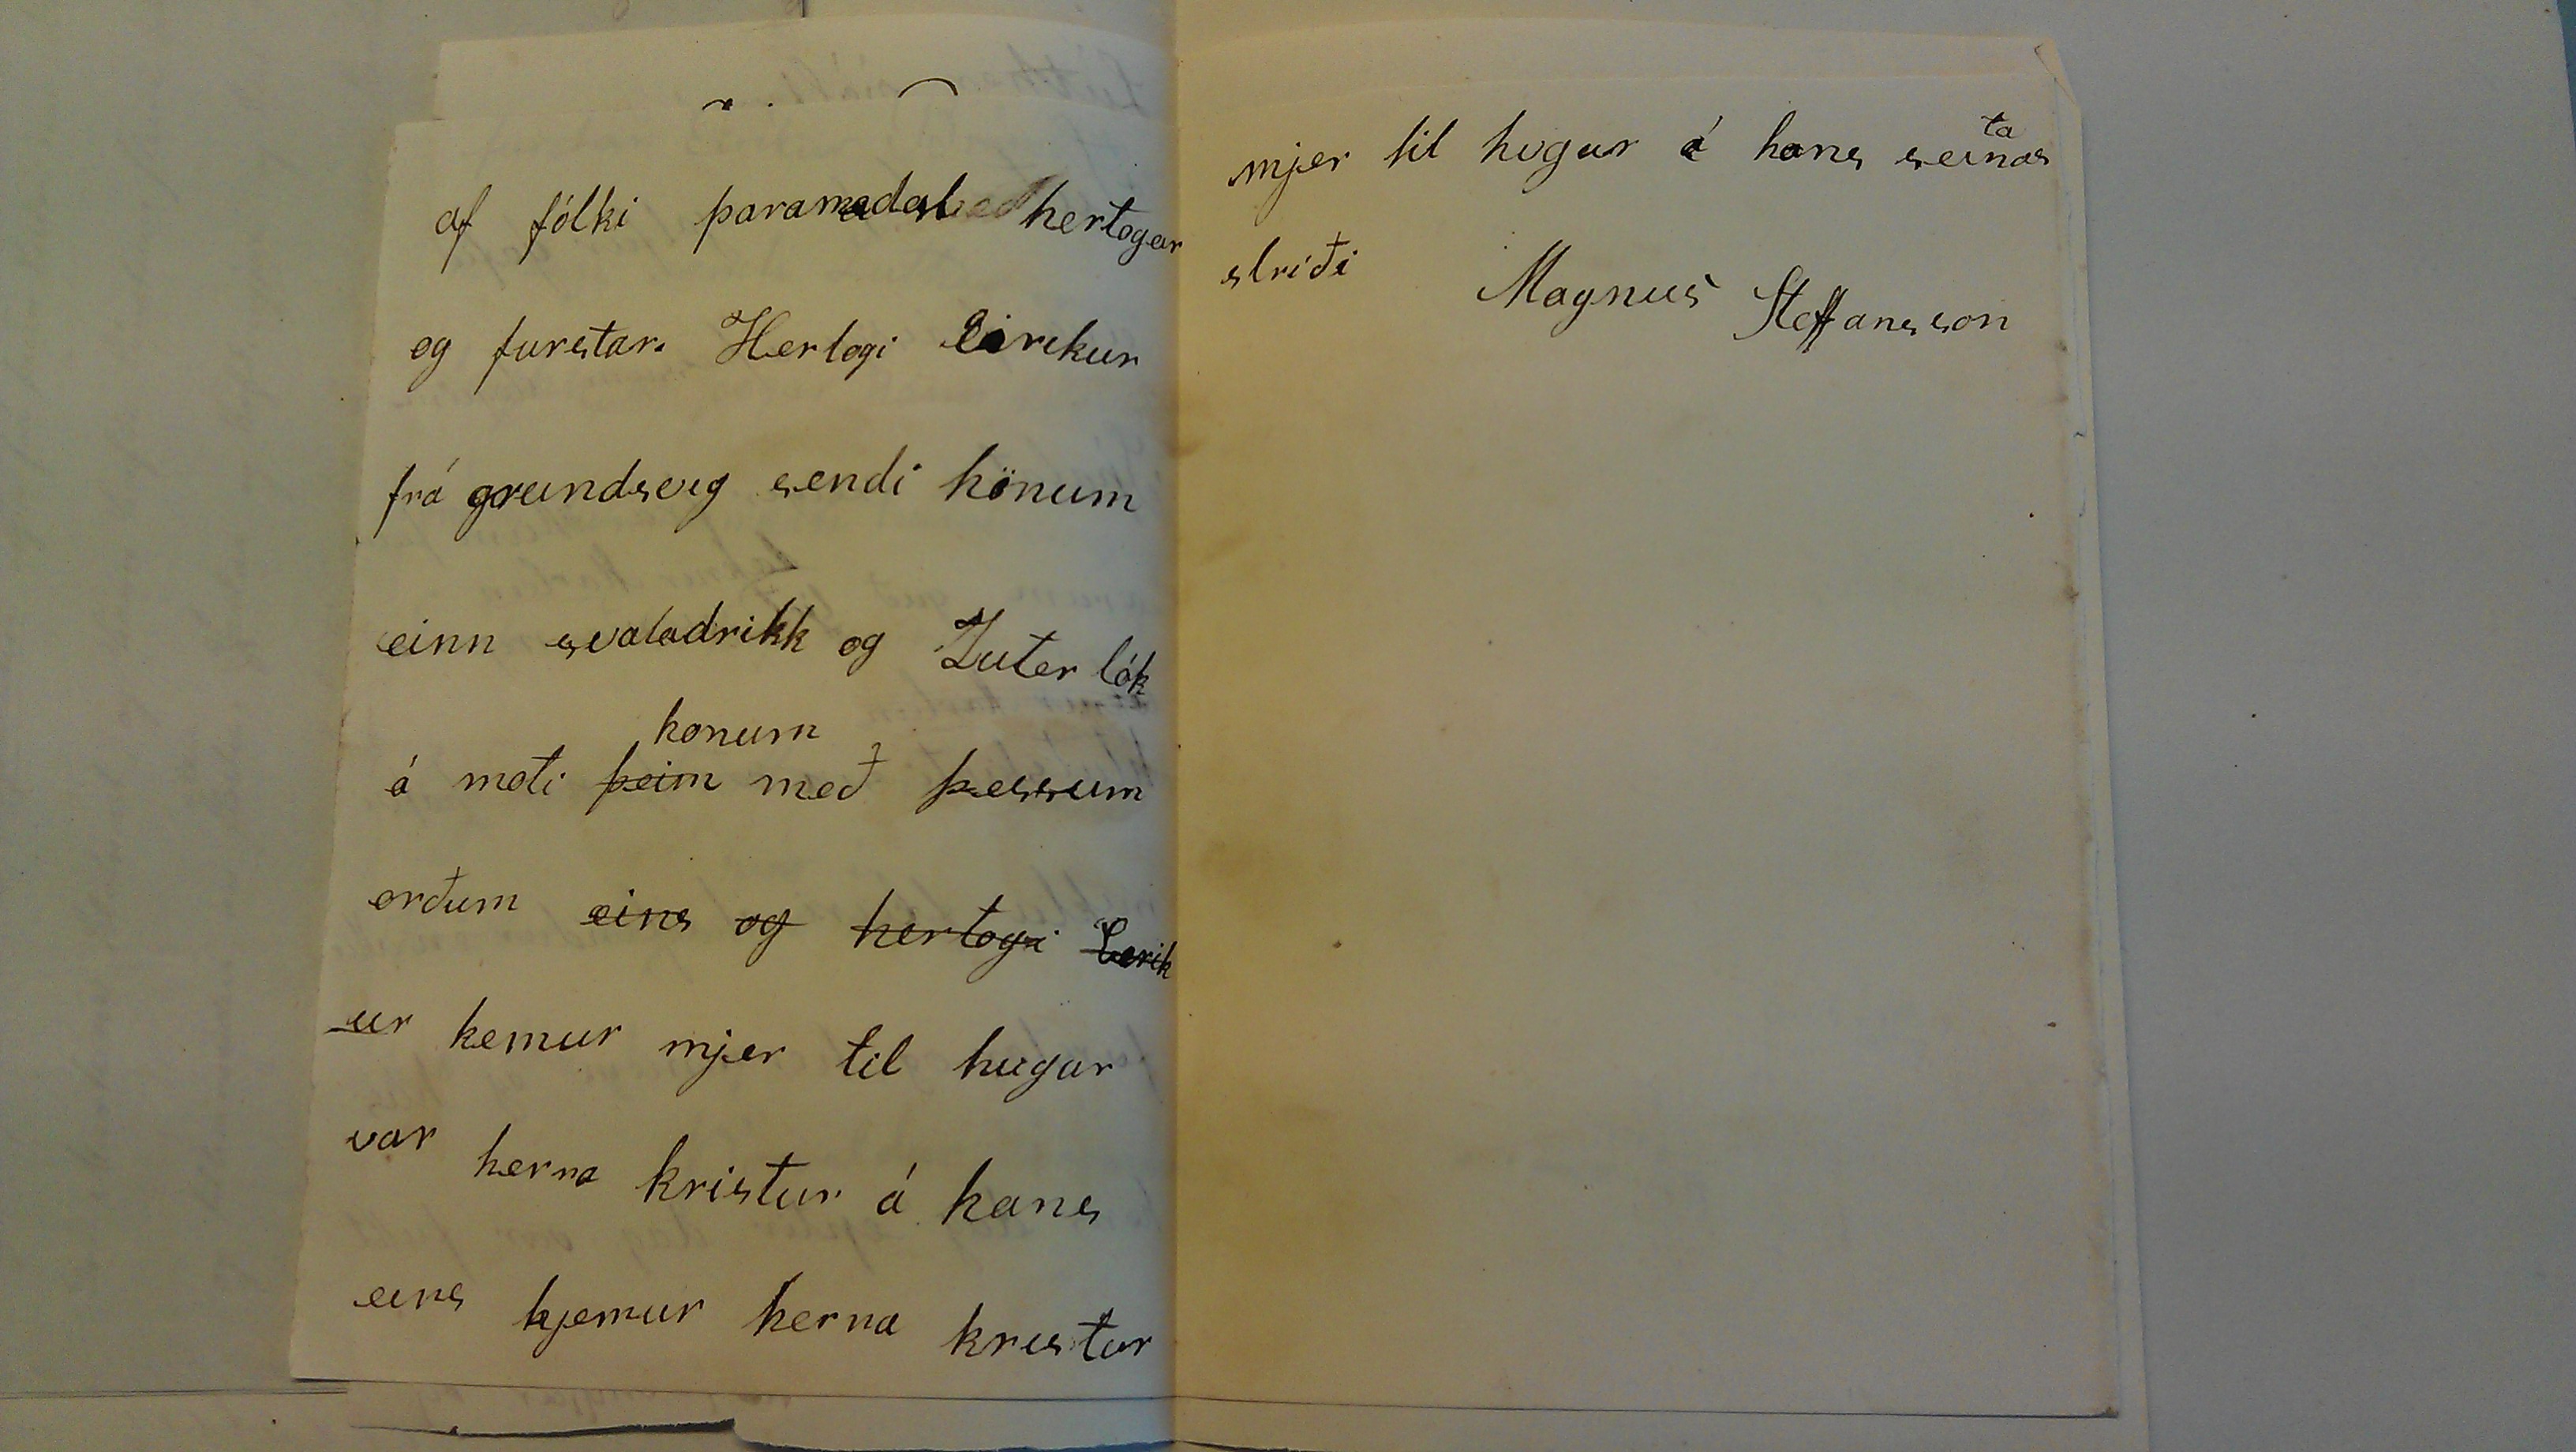 af fólki þaramedal hertogar
og furstar. Hertogi Eirekur
frá grundsveg sendi hönum
einn svaladrikk og Luter tók
honum
á moti þeim með þessum
orðum eins og hertogi Eerik
ur kemur mjer til hugar
var herna kristur á hans
eins kjemur herna kristur
mjer til hugar á hans seinas
ta
stríði Magnus Steffansson